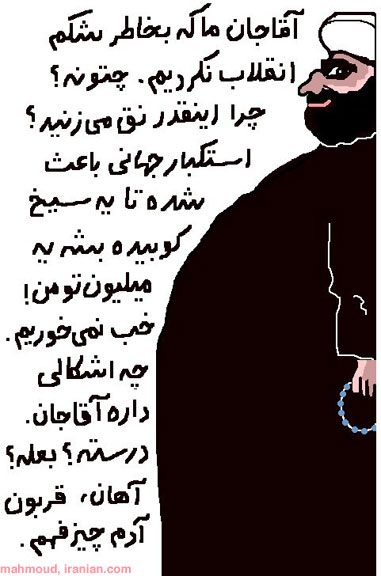 آقاجان ما که بخاطر شکم
انقلاب نکردیم. چتونه؟
چرا اینقدر نق می‌زنید؟
استکبار جهانی باعث
شده تا یه سیخ
کوبیده بشه یه
میلیون تومن!
خب نمی‌خوریم.
چه اشکالی
داره آقاجان.
درسته؟ بعله؟
آهان، قربون
آدم چیز فهم.
mahmoud, iranian.com